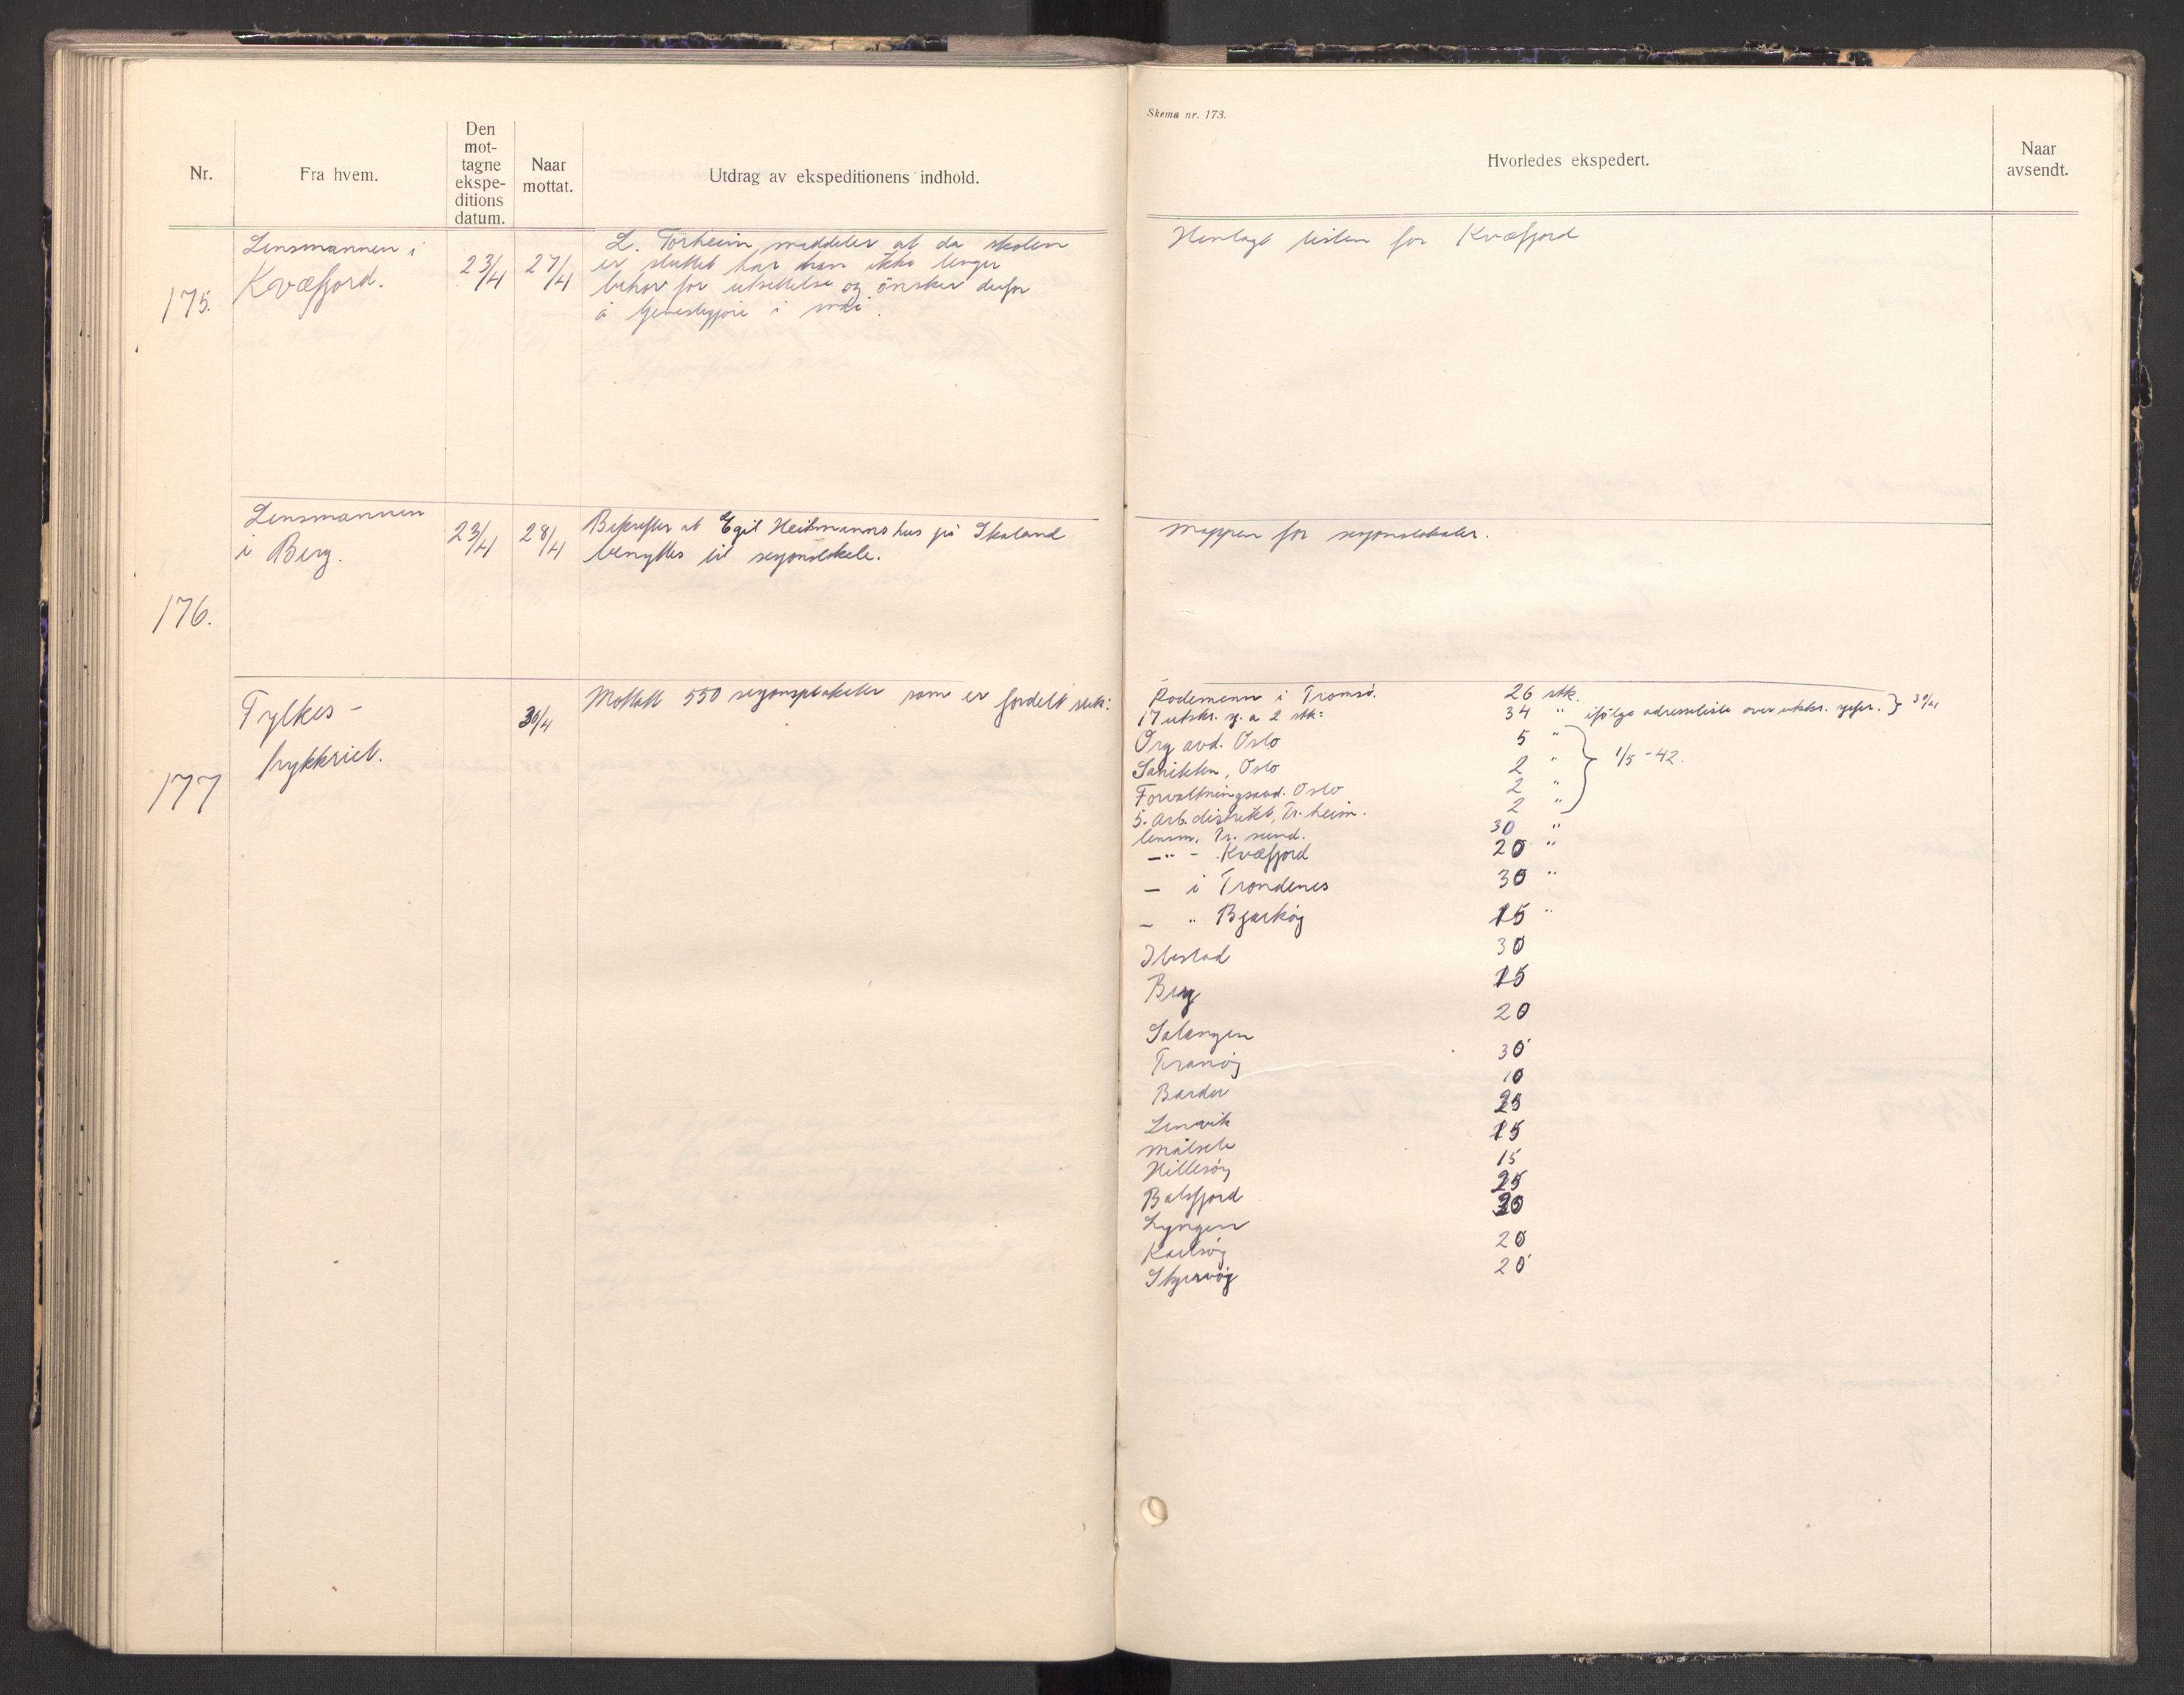 Skema nr. 173.
Nr.
Fra hvem.
Den
mot-
tagne
ekspe-
ditions
datum.
Naar
mottat.
Utdrag av ekspeditionens indhold.
Hvorledes ekspedert.
Naar
avsendt.
175.
Lensmannen i
Kvæfjord.
23/4
27/4
L. Torheim, meddeler at da skolen
er sluttet har han ikke lenger
behov for utsettelse og ønsker derfor
å tjenestegjøre i mai.
Henlagt listen for Kvæfjord
176.
Lensmannen
i Berg.
23/4
28/4
Bekrefter at Egil Heitmanns hus på Skaland
benyttes til sesjonslokale.
Mappen for sesjonslokaler.
177
Fylkes-
trykkeriet.
30/4
Mottatt 550 sesjonsplakater som er fordelt slik:
Rodemenn i Tromsø. 26 stk.
17 utskr. sj. a 2 stk: 34 " ifølge adresseliste over utskr. sjefer. } 30/4
Org avd. Oslo 5 "
Saniteten, Oslo 2 " } 1/5-42.
Forvaltningsavd. Oslo 2 "
5. Arb. distrikt, Tr. heim. 2 "
lensm. Tr. sund. 30 "
—"— Kvæfjord 20 "
— i Trondenes 30 "
— " Bjarkøy 15 "
Ibestad 30
Berg 15
Salangen 20
Tranøy 30
Bardu 10
Lenvik 25
Målselv 15
Hillesøy 15
Balsfjord 25
Lyngen 30
Karlsøy 20
Skjervøy 20